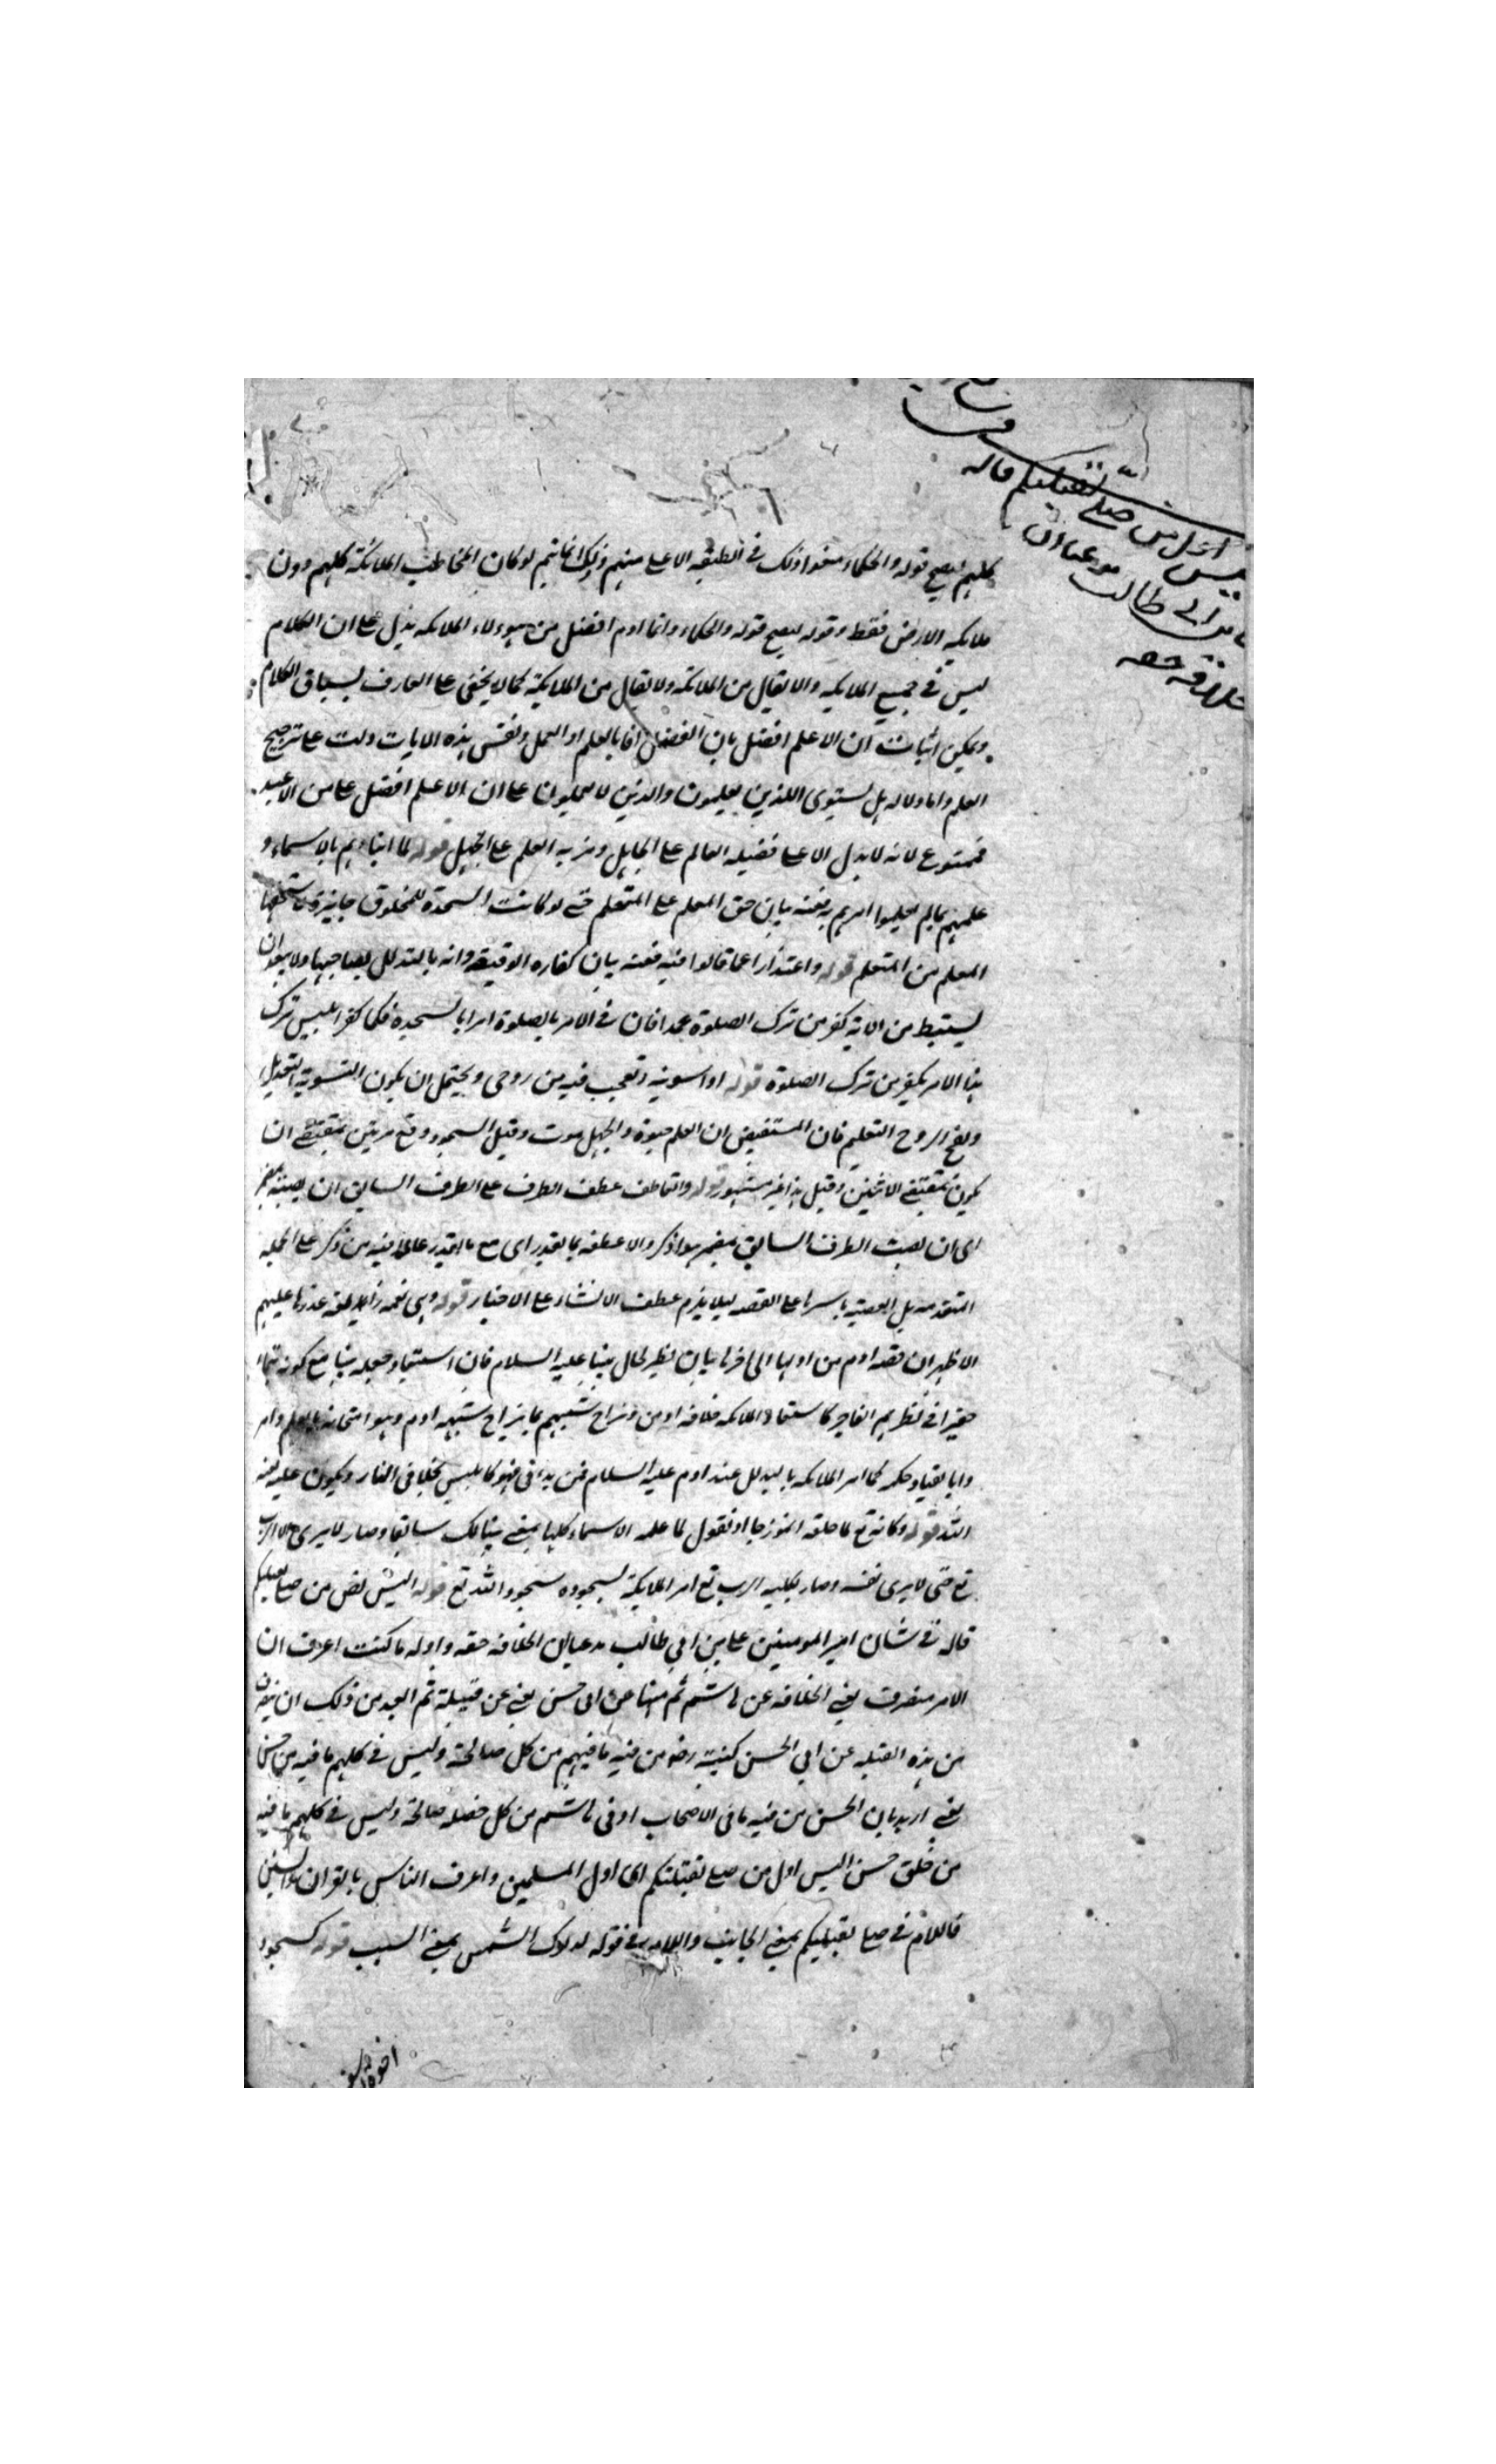 اول من صلى لقبلتكم قاله
طالب مدعيا ان
حقه
كلهم ليصح قوله والحكماء منعوا ذلك في الطبقه الاعلى منهم وذلك انما يتم لو كان المخاطب الملائكة كلهم دون
ملائكه الارض فقط وقوله ليصح قوله والحكماء وانما ادم افضل من هؤلاء الملائكه يدل على ان الكلام
ليس في جميع الملايكه والا يقال من الملائكه ولا يقال من الملايكة كما لا يخفى على العارف بسياق الكلام
ويمكن اثبات ان الاعلم افضل بان الفضل اما بالعلم او العمل ونفس هذه الايات دلت على ترجيح
العلم واما دلاله هل يستوى الذين يعلمون والذين لا يعلمون على ان الاعلم افضل على من الاعبد
فممنوع لانه لا يدل الا على فضيله العالم على الجاهل ومزيه العلم على الجهل قوله لما انباءهم بالاسماء و
علمهم بما لم يعلموا امرهم ففيه بيان حق المعلم على المتعلم حتى لو كانت السجدة للمخلوق جايزة لاستحقها
المعلم من المتعلم قوله واعتذارا عما قالوا فيه ففيه بيان كفاره الوقيعه وانه بالتذلل لصاحبها ولا يبعد ان
يستنبط من الاية كفر من ترك الصلوة عمدا فان في الامر بالصلوة امرا بالسجدة فكما كفر ابليس بترك
هذا الامر يكفر من ترك الصلوة قوله اذا سويته ونفخت فيه من روحى ويحتمل ان يكون التسوية التعديل
ونفخ الروح التعليم فان المستفيض ان العلم حيوة والجهل موت وقيل السجود وقع مرتين بمقتضى ان
يكون بمقتضى الاثنين وقيل هذا غير مشهور قوله والعاطف عطف الظرف على الظرف السابق ان نصبته بمضمر
اى ان نصبت الظرف السابق بمضمر هو اذكر والا عطفه بما يقدر اى مع ما يقدر عاملا فيه من ذكر على الجملة
المتقدمه بل القصة باسرها على القصه ليلا يلزم عطف الانشاء على الاخبار قوله وهى نعمه رابعة عدها عليهم
الاظهر ان قصه ادم من اولها الى اخرها بيان نظير لحال نبينا عليه السلام فان استبعاد جعله نبيا مع كونه يتيما
حقيرا في نظرهم الفاجر كاستبعاد الملائكه خلافه ادم وازاح شبههم بما يزاح شبهه ادم وهو امتحانه بالعلم وامر
وا بانقياد حكمه كما امر الملائكه بالتذلل عند ادم عليه السلام فمن يدا فى فهو كابليس مخلدا فى النار ويكون عليه لعنه
الله قوله وكانه تع لما خلقه انموزجا او نقول لما علمه الاسماء كلها سابقا وصار لا يرى الا الرب
تع حتى لا يرى نفسه وصار بكليه الرب تع امر الملايكة لسجوده سجود الله تع قوله اليس اول من صلى لقبلتكم
قاله في شان امير المومنين على بن ابى طالب مدعيا ان الخلافه حقه واوله ما كنت اعرف ان
الامر منصرف يعنى الخلافه عن هاشم ثم منها عن ابى حسن يعنى عن قبيلة ثم ابعد من ذلك ان ينصرف
من هذه القبيله عن ابى الحسن كنيته رضه من فيه ما فيهم من كل صالحة وليس في كلهم ما فيه من حسن
يعنى اريد بابى الحسن من فيه ما فى الاصحاب او فى هاشم من كل خصله صالحة وليس في كلهم ما فيه
من خلق حسن اليس اول من صلى لقبلتكم اى اول المسلمين واعرف الناس بالقران والسنن
فاللام في صلى لقبلتكم بمعنى الجانب واللام في قوله لدلوك الشمس بمعنى السبب قوله كسجود